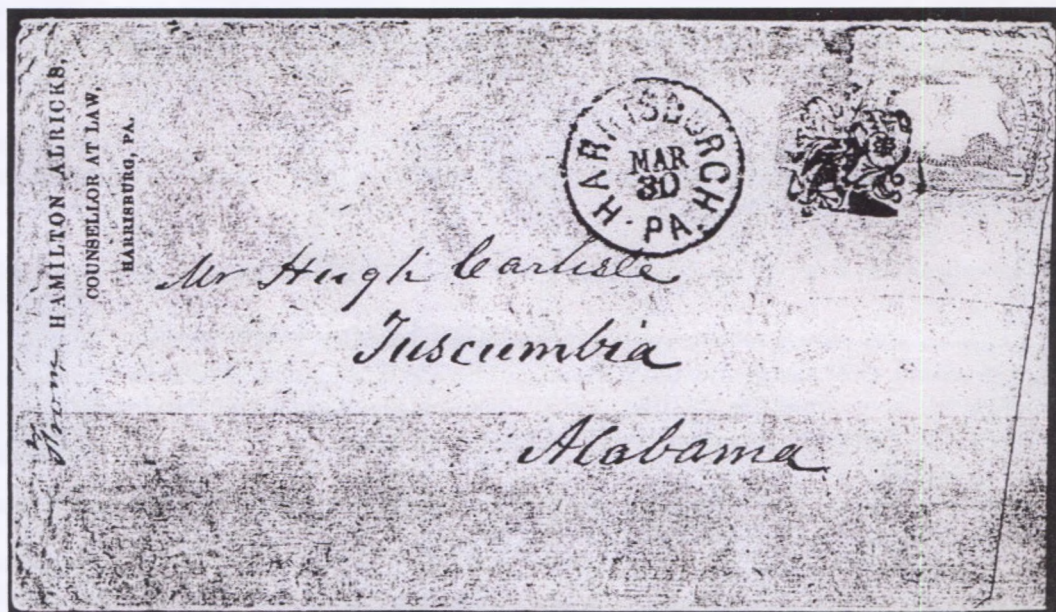 From HAMILTON ALRICKS,
COUNSELLOR AT LAW,
HARRISBURG, PA.
HARRISBURGH PA.
MAR
30
Mr Hugh Carlisle
Tuscumbia
Alabama